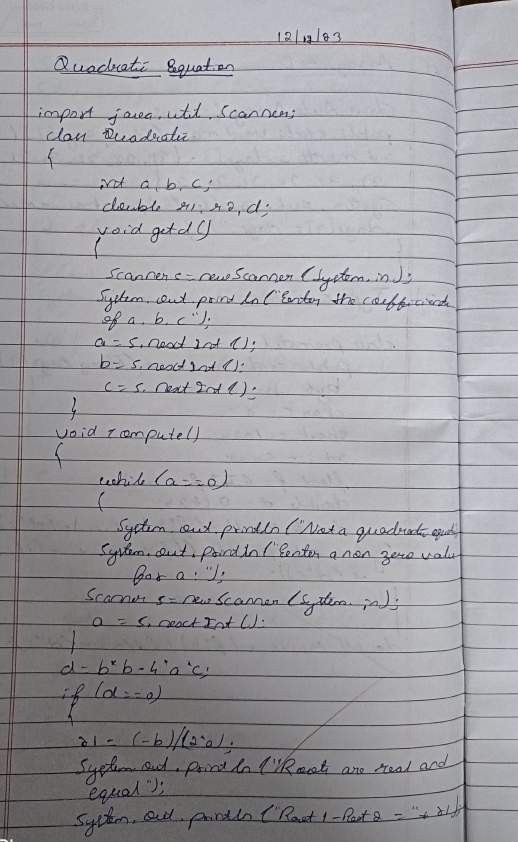 12/12/23
Quadratic Equation
import java.util.Scanner;
class Quadratic
{
int a, b, c;
double r1, r2, d;
void getd()
{
Scanner s = new Scanner (System.in);
System.out.println ("Enter the coefficients
of a, b, c");
a = s.nextInt ();
b = s.nextInt ();
c = s.nextInt ();
}
void compute()
{
while (a==0)
{
System.out.println ("Not a quadratic equ
System.out.println ("Enter a non zero valu
for a:");
Scanner s = new Scanner (System.in);
a = s.nextInt ();
}
d = b*b-4*a*c;
if (d==0)
{
r1 = (-b)/(2*a);
System.out.println ("Roots are real and
equal");
System.out.println ("Root 1 - Root 2 = "+ r1);